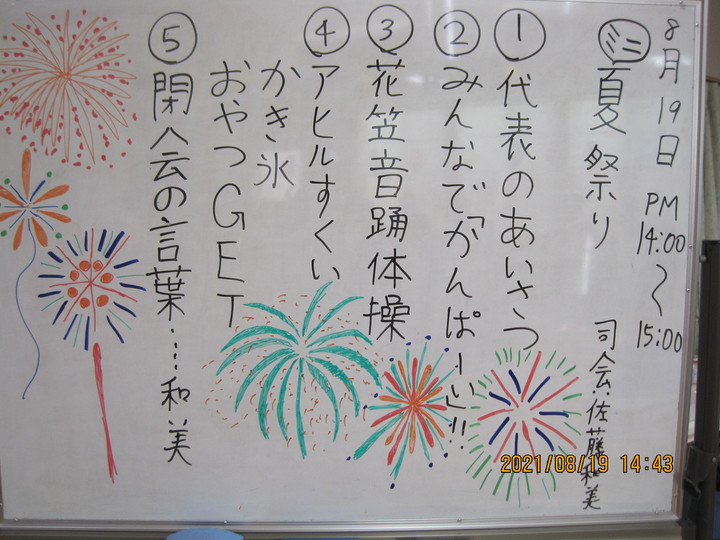 8月19日 PM 14:00〜15:00
ミニ 夏祭り 司会.佐藤和美
① 代表のあいさつ
② みんなで「かんぱーい」!!
③ 花笠音踊体操
④ アヒルすくい
かき氷
おやつGET
⑤ 閉会の言葉…和美
2021/08/19 14:43